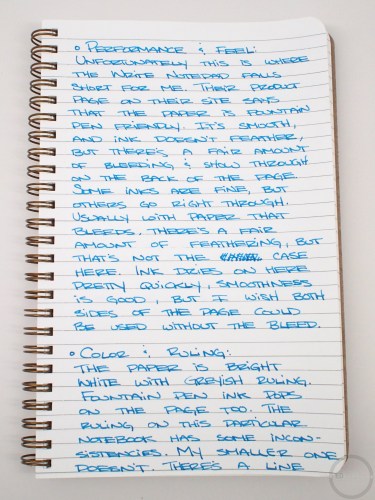 ° Performance & Feel:
Unfortunately this is where
the Write Notepad falls
short for me. Their product
page on their site says
that the paper is fountain
pen friendly. It's smooth,
and ink doesn't feather,
but there's a fair amount
of bleeding & show through
on the back of the page.
Some inks are fine, but
others go right through.
Usually with paper that
bleeds. There's a fair
amount of feathering, but
that's not the case
here. Ink dries on here
pretty quickly, smoothness
is good, but I wish both
sides of the page could
be used without the bleed.
° Color & Ruling:
The paper is bright
white with greyish ruling.
Fountain pen ink pops
on the page too. The
ruling on this particular
notebook has some incon-
sistencies. My smaller one
doesn't. There's a line